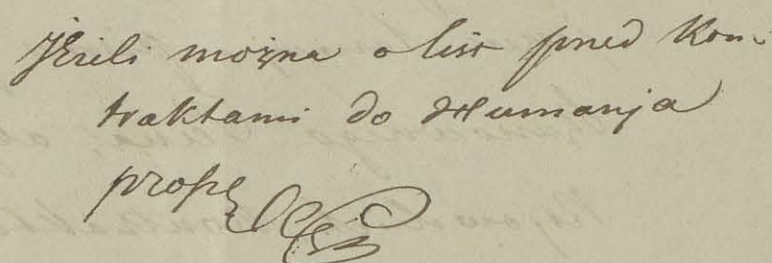 Jeżeli można o list przed Kon-
traktami do Humania
proszę